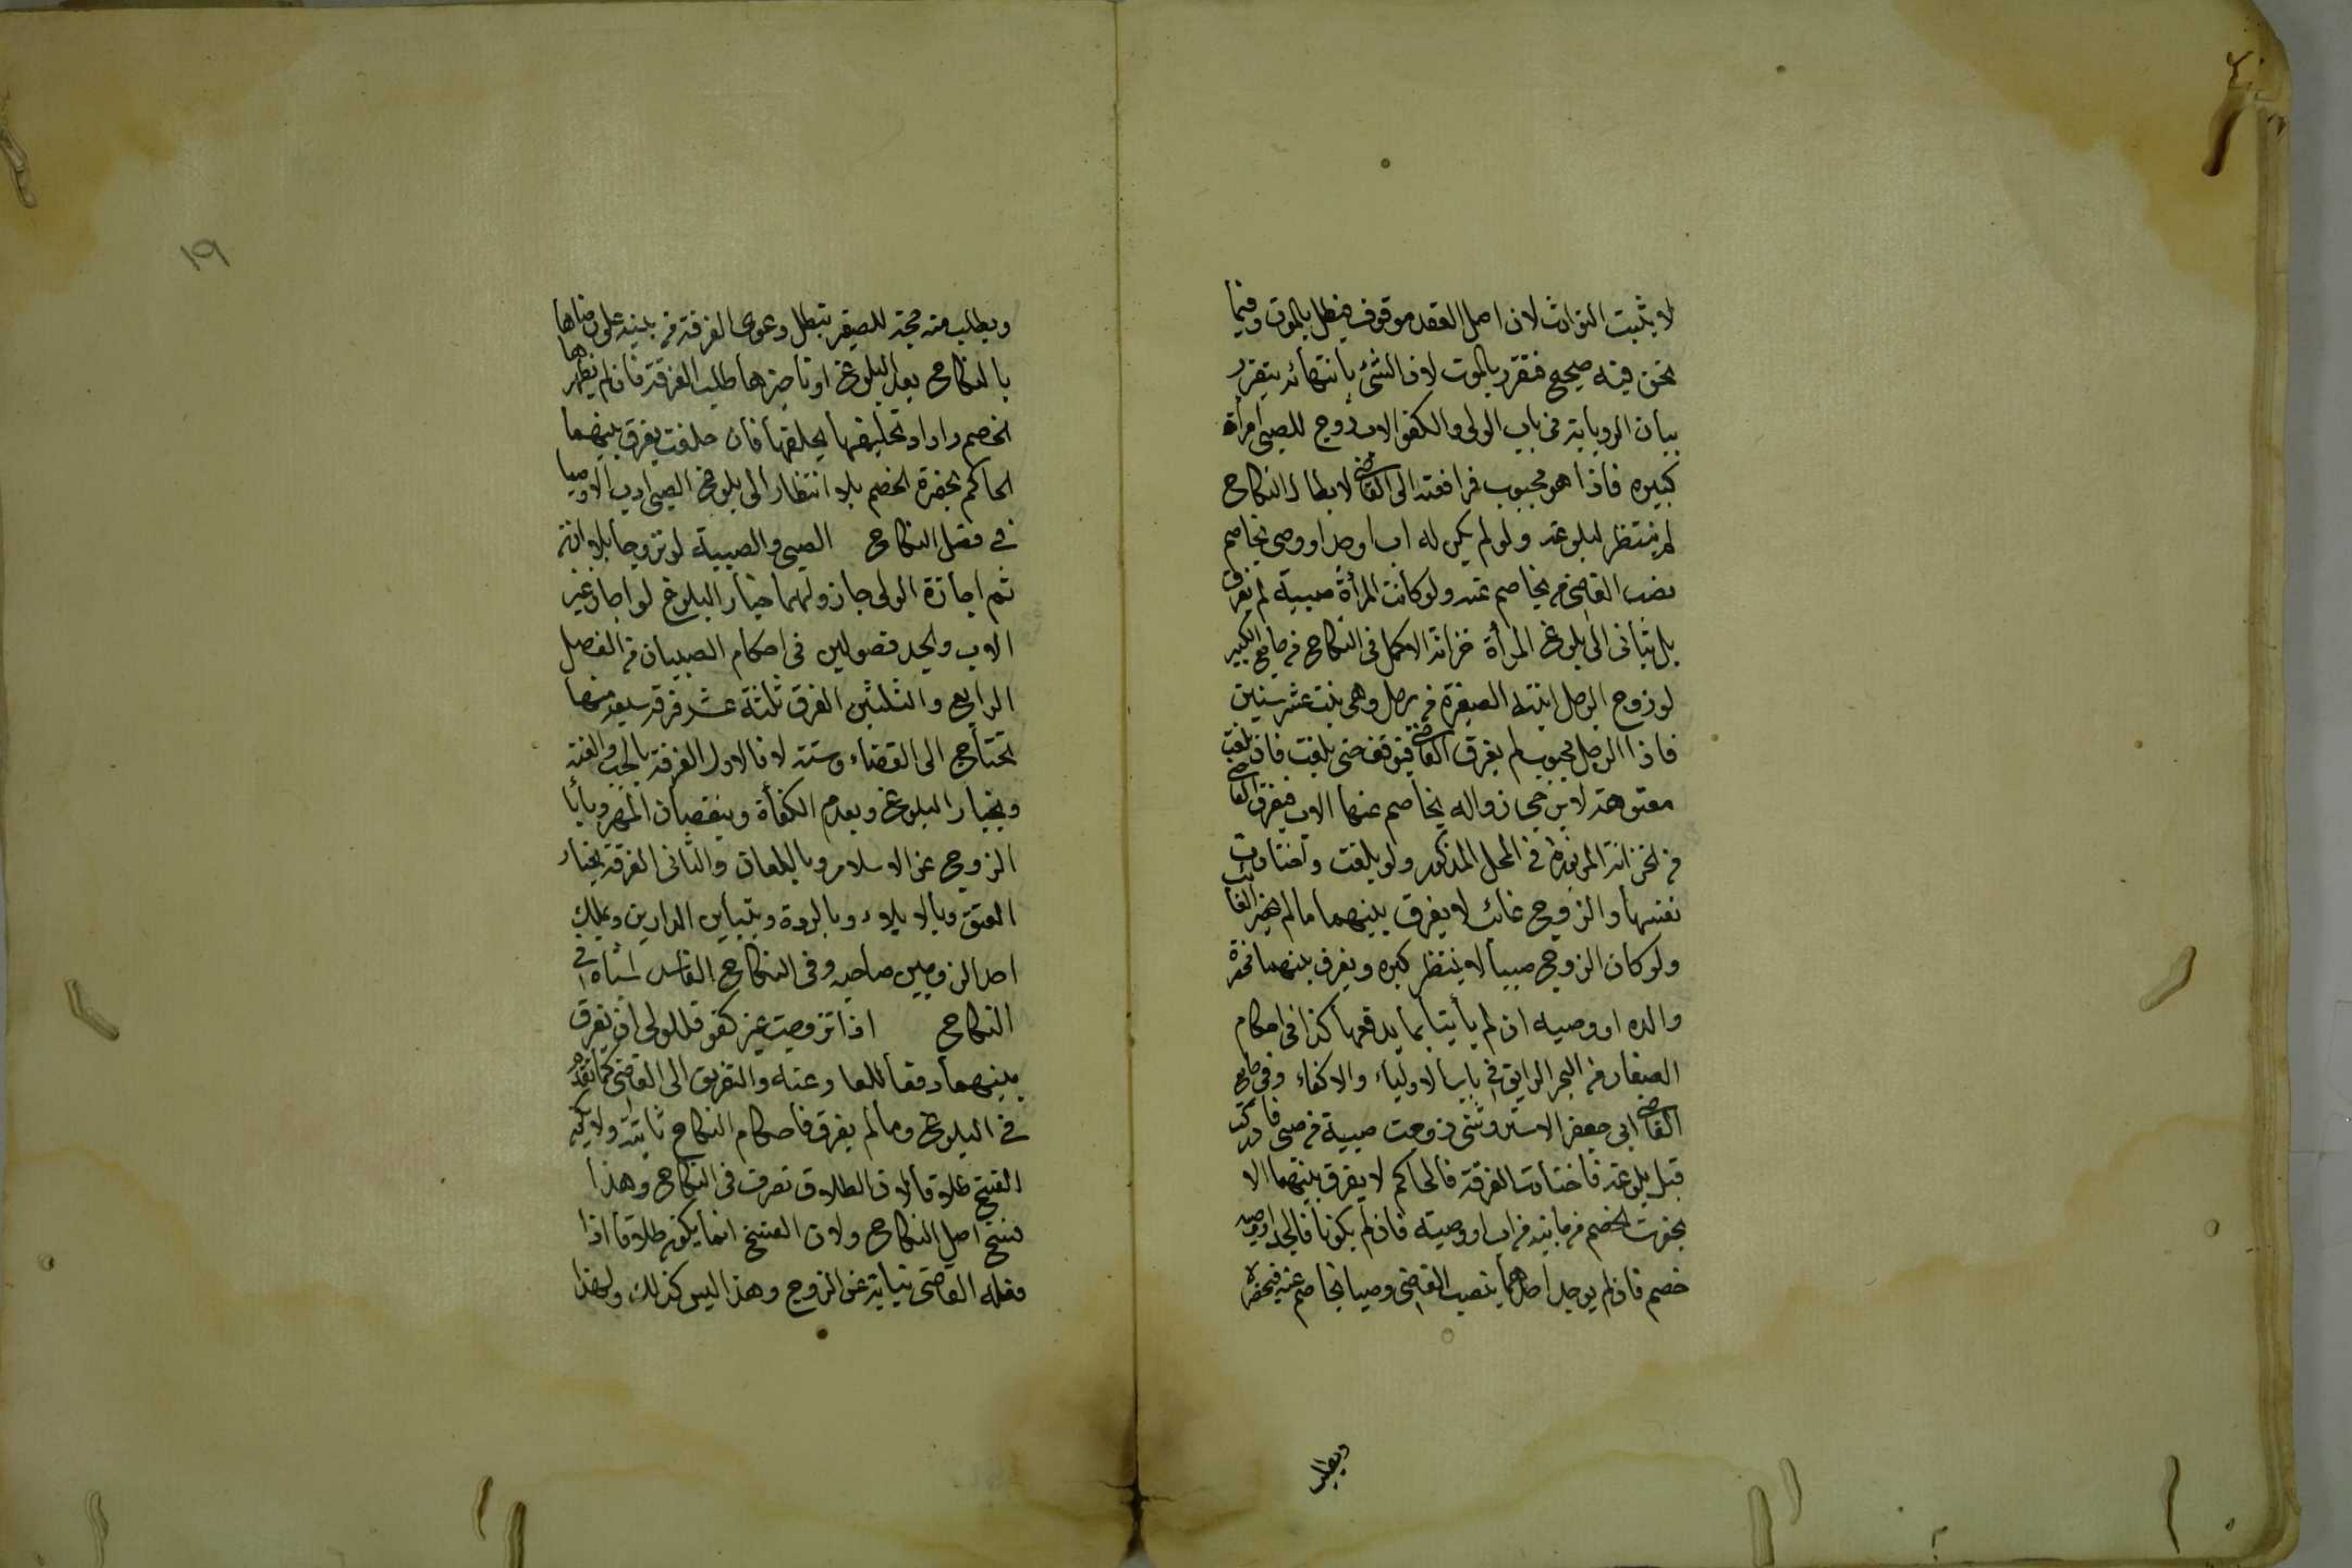 لا يثبت التوارث لان اصل العقد موقوف فيبطل بالموت وفيما
نحن فيه صحيح فتقرر بالموت لان الشئ بانتهائه يتقرر
بيان الرواية فى باب الولى والكفو الاب زوج للصبى امرأة
كبيره فاذا هو مجبوب فرافعته الى القاضى لابطال النكاح
لم ينتظر لبلوغه ولو لم يكن له اب او جد او وصى يخاصم
نصب القاضى من يخاصم عنه ولو كانت المرأة صبية لم يفرق
بل يتأنى الى بلوغ المرأة خزانة الاكمل فى النكاح من جامع الكبير
لو زوج الرجل ابنته الصغيرة من رجل وهى بنت عشر سنين
فاذا الرجل مجبوب لم يفرق القاضى فيتوقف حتى بلغت فان بلغت
معتوهة لا يرجى زواله يخاصم عنها الاب فيفرق القاضى
من خزانة المزبورة فى المحل المذكور ولو بلغت واختارت
نفسها والزوج غائب لا يفرق بينهما ما لم يحضر الغائب
ولو كان الزوج صبيا لا ينتظر كبره ويفرق بينهما بحضرة
والده او وصيه ان لم يأتيا بما يدفعها كذا فى احكام
الصغار من البحر الرايق فى باب الاولياء والاكفاء وفى جامع
القاضى ابى جعفر الاستروشنى زوجت صبية من صبى فادركت
قبل بلوغه فاختارت الفرقة فالحاكم لا يفرق بينهما الا
بحضرت الخصم من جانبه من اب او وصيته فان لم يكونا فالجد او وصيه
خصم فان لم يوجد احدهما ينصب القاضى وصيا يخاصم عنه فيحضره
ويطلب
١٩
ويطلب منه حجة للصغير تبطل دعوى الفرقة من بينة على رضاها
بالنكاح بعد البلوغ او تأخيرها طلب الفرقة فان لم يظهرها
الخصم واراد تحليفها يحلفها فان حلفت يفرق بينهما
الحاكم بحضرة الخصم بلا انتظار الى بلوغ الصبى ادب الاوصيا
فى فصل النكاح الصبى والصبية لو تزوجا بلا اذن
ثم اجازة الولى جاز ولهما خيار البلوغ لو اجاز غير
الاب والجد فصولين فى احكام الصبيان من الفصل
الرابع والثلثين الفرق ثلثة عشر فرقة سبعة منها
تحتاج الى القضاء وستة لا فالاول الفرقة بالجب والعنة
وبخيار البلوغ وبعدم الكفأة وبنقصان المهر وبابا
الزوج عن الاسلام وباللعان والثانى الفرقة بخيار
العتق وبالايلاء وبالردة وبتباين الدارين وبملك
احد الزوجين صاحبه وفى النكاح الفاسد اشباه فى
النكاح اذا تزوجت غير كفو فللولى ان يفرق
بينهما دفعا للعار عنه والتفريق الى القاضى كما تقدم
فى البلوغ وما لم يفرق فاحكام النكاح ثابتة ولا يكون
الفسخ طلاقا لان الطلاق تصرف فى النكاح وهذا
فسخ اصل النكاح ولان الفسخ انما يكون طلاقا اذا
فعله القاضى نيابة عن الزوج وهذا ليس كذلك ولهذا